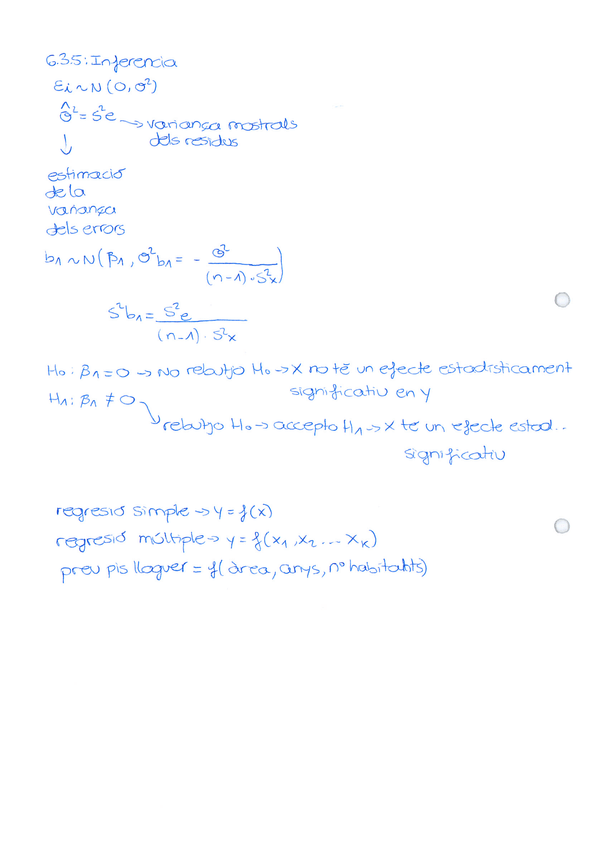 6.3.5: Inferencia
εi ~ N (0, σ²)
σ̂² = s²e → variança mostrals
dels residus
↓
estimació
de la
variança
dels errors
b1 ~ N(β1, σ²b1 = - σ² / (n-1)·s²x)
s²b1 = s²e / (n-1)·s²x
H0: β1 = 0 → No rebutjo H0 → X no té un efecte estadísticament
significatiu en y
H1: β1 ≠ 0
rebutjo H0 → accepto H1 → X té un efecte estad..
significatiu
regresió simple → y = f(x)
regresió múltiple → y = f(x1, x2 ... xk)
preu pis lloguer = f(àrea, anys, nº habitants)